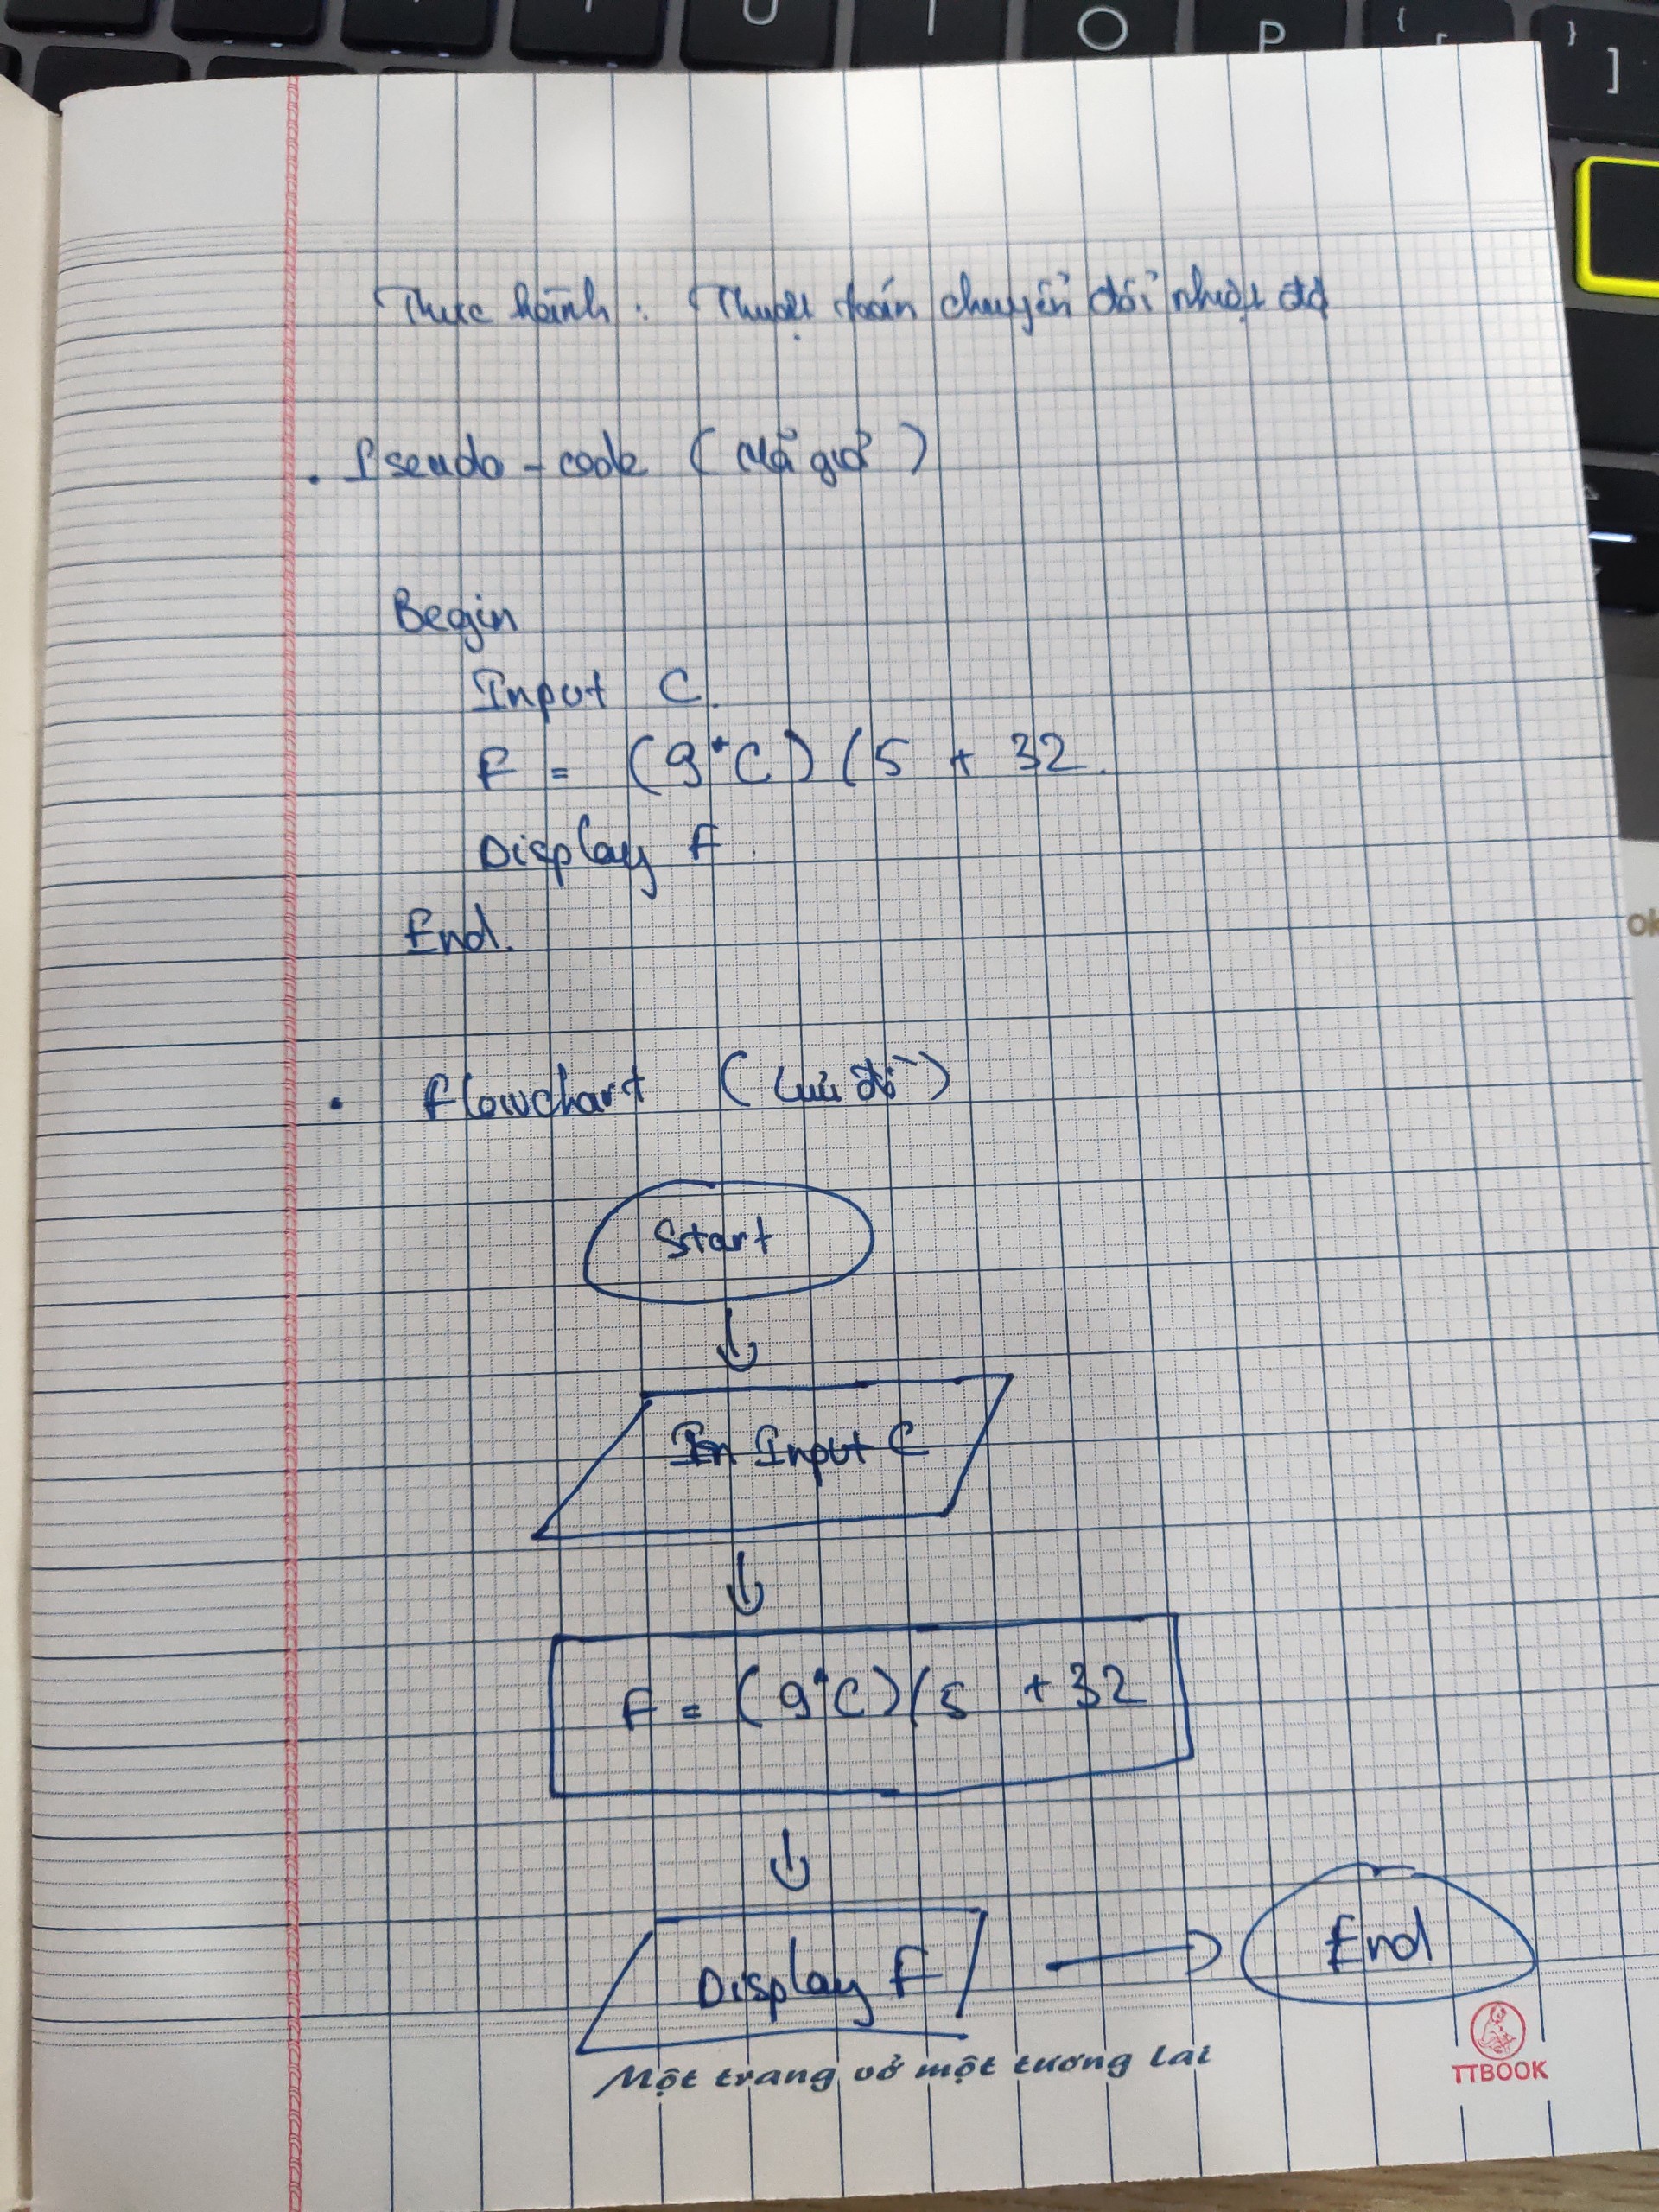 U I O P { [ } ]
Thực hành : Thuật toán chuyển đổi nhiệt độ
. Pseudo - code ( Mã giả )
Begin
Input C.
F = (9*C) (5 + 32.
Display F.
End.
ok
• Flowchart ( Lưu đồ )
Start
In Input C
F = (9*C) (5 + 32
Display F
End
Một trang vở một tương lai
TTBOOK